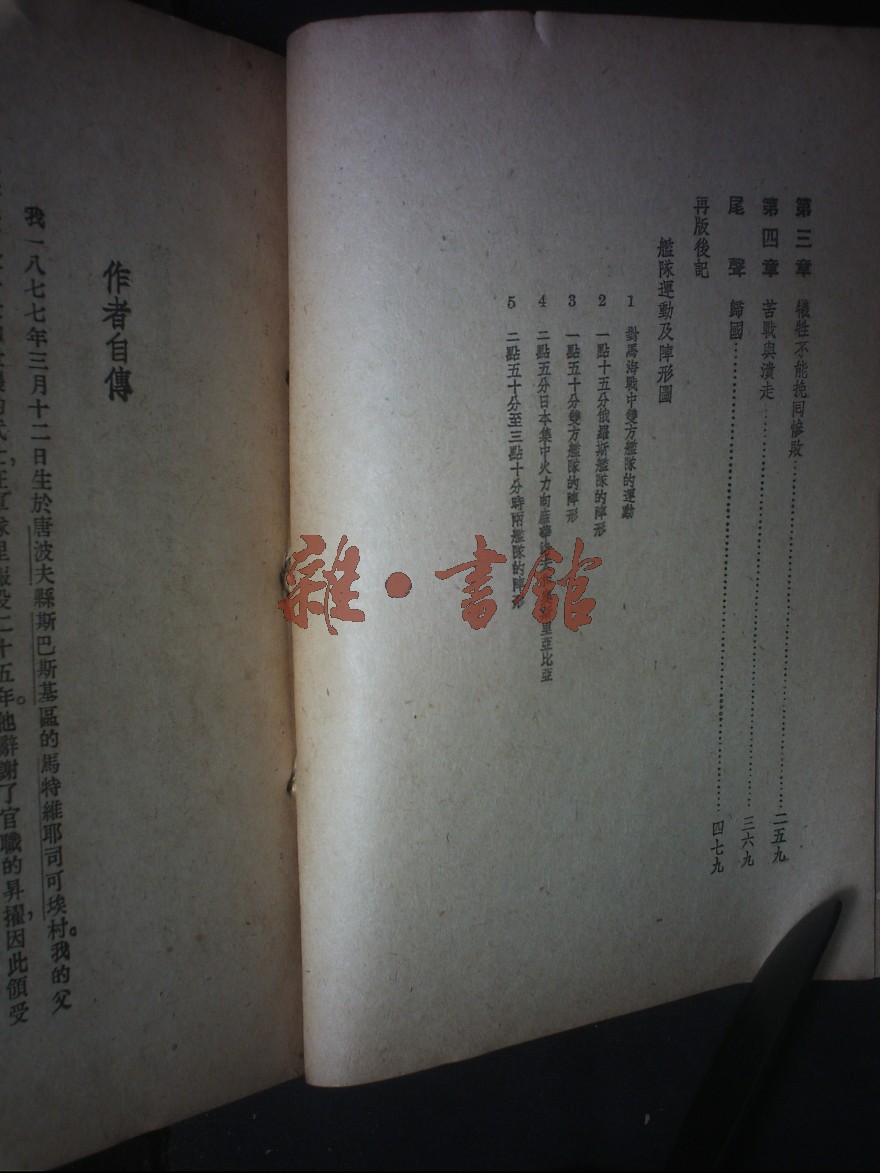 第三章 犧牲不能挽回慘敗……二五九
第四章 苦戰與潰走……三六九
尾聲 歸國……四七九
再版後記
艦隊運動及陣形圖
1 對馬海戰中雙方艦隊的運動
2 一點十五分俄羅斯艦隊的陣形
3 一點五十分雙方艦隊的陣形
4 二點五分日本集中火力向 里亞比亞
5 二點五十分至三點十分時兩艦隊的陣形
作者自傳
我一八七七年三月十二日生於唐波夫縣斯巴斯基區的馬特維耶司可埃村。我的父
軍隊里服役二十五年。他辭謝了官職的昇擢,因此領受
雜·書館